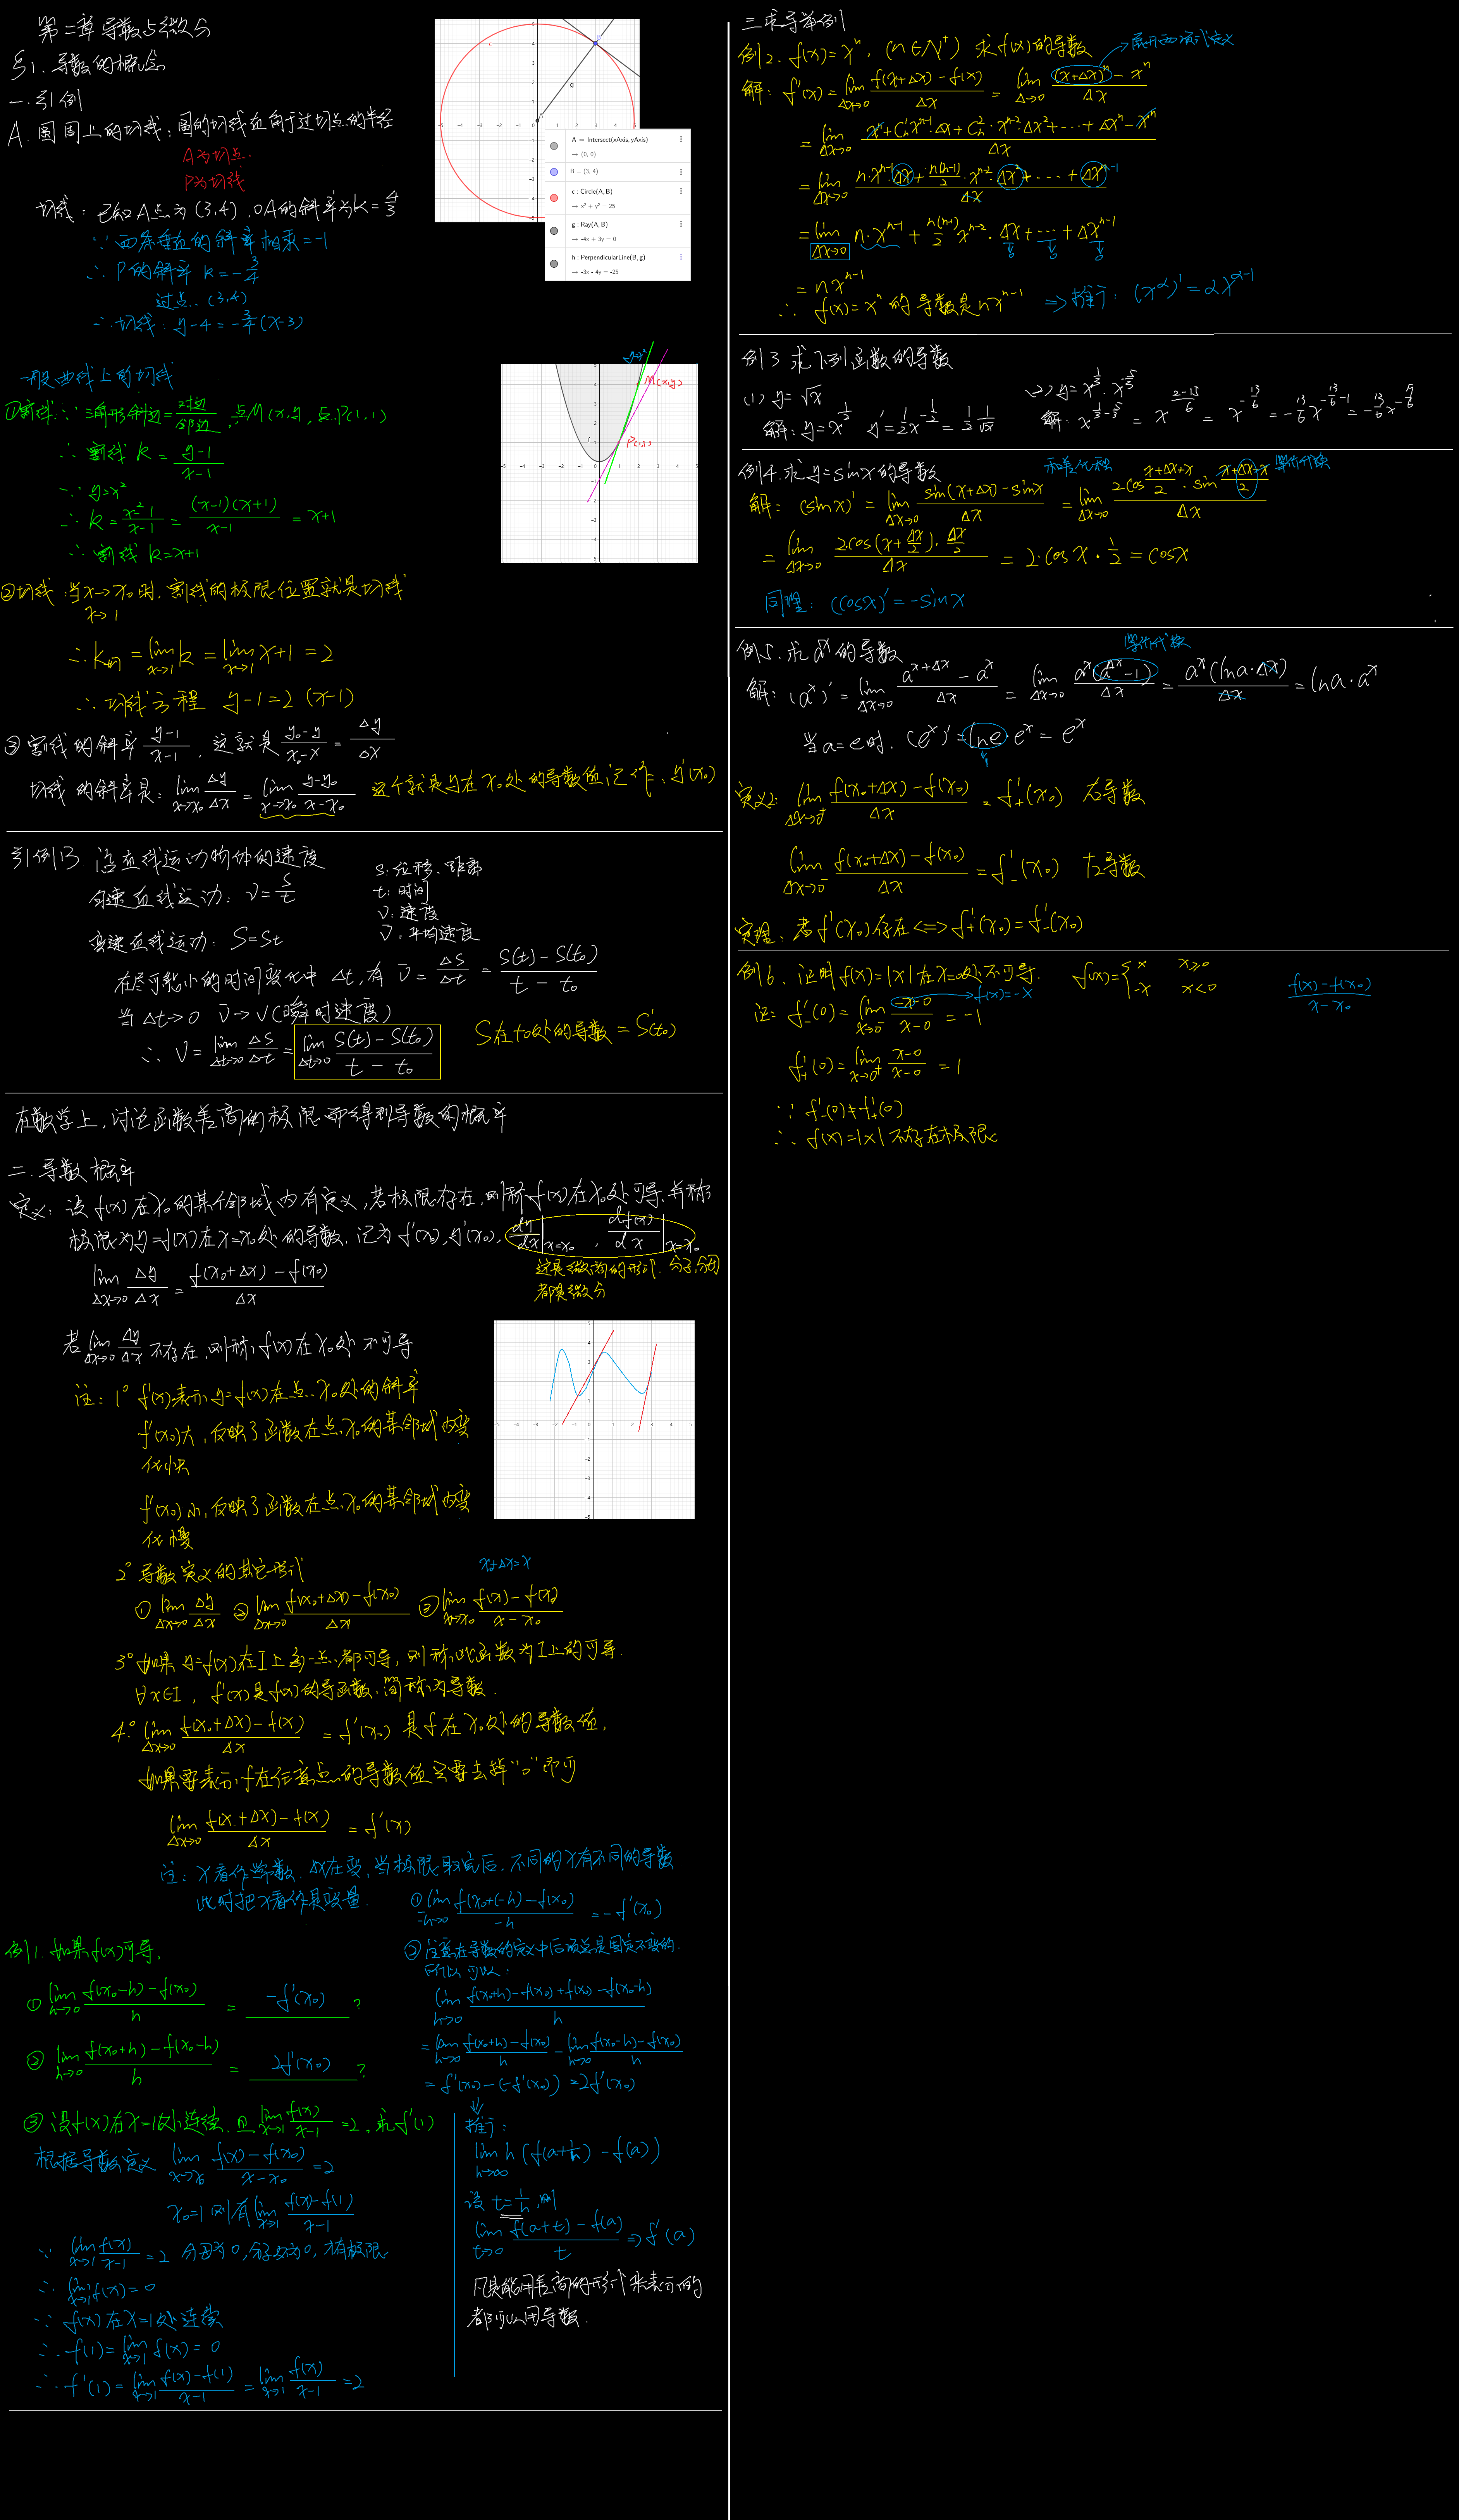 第二章 导数与微分
§1. 导数的概念
一. 引例
A. 圆周上的切线: 圆的切线垂直于过切点的半径
A为切点
P为切线
切线: 已知A点为 (3,4), OA的斜率为K=4/3
∵ 两条垂直的斜率相乘=-1
∴ P的斜率 k=-3/4
过点 (3,4)
∴ 切线: y-4=-3/4(x-3)
A = Intersect(xAxis, yAxis)
→ (0, 0)
B = (3, 4)
c : Circle(A, B)
→ x² + y² = 25
g : Ray(A, B)
→ -4x + 3y = 0
h : PerpendicularLine(B, g)
→ -3x - 4y = -25
一般曲线上的切线
①割线: ∵ 三角形斜边=对边/邻边, 点M(x,y, 点P(1,1)
∴ 割线 k = (y-1)/(x-1)
∵ y=x²
∴ k = (x²-1)/(x-1) = (x-1)(x+1)/(x-1) = x+1
∴ 割线 k=x+1
y=x²
M(x,y)
P(1,1)
②切线: 当x→x₀时, 割线的极限位置就是切线
x→1
∴ k切 = lim x→1 k = lim x→1 x+1 = 2
∴ 切线方程 y-1=2(x-1)
③割线的斜率 (y-1)/(x-1), 这就是 (y₀-y)/(x₀-x) = Δy/Δx
切线的斜率是: lim x→x₀ Δy/Δx = lim x→x₀ (y-y₀)/(x-x₀) 这个就是y在x₀处的导数值, 记作: y'(x₀)
引例B 沿直线运动物体的速度
匀速直线运动: v=s/t
s: 位移、距离
t: 时间
v: 速度
v̄: 平均速度
变速直线运动: S=St
在尽可能小的时间变化中 Δt, 有 v̄ = ΔS/Δt = (S(t)-S(t₀))/(t-t₀)
当 Δt→0 v̄→v(瞬时速度)
∴ v = lim Δt→0 ΔS/Δt = lim Δt→0 (S(t)-S(t₀))/(t-t₀) S在t₀处的导数 = S'(t₀)
在数学上, 讨论函数差商的极限而得到导数的概率
二. 导数概率
定义: 设f(x)在x₀的某个邻域内有定义, 若极限存在, 则称f(x)在x₀处可导, 并称
极限为y=f(x)在x=x₀处的导数, 记为 f'(x₀), y'(x₀), dy/dx|x=x₀, df(x)/dx|x=x₀
这是微商的形式, 分子,分母
都是微分
lim Δx→0 Δy/Δx = (f(x₀+Δx)-f(x₀))/Δx
若 lim Δx→0 Δy/Δx 不存在, 则称f(x)在x₀处不可导
注: 1° f'(x)表示y=f(x)在点x₀处的斜率
f'(x₀)大, 反映了函数在点x₀的某邻域内变
化快
f'(x₀)小, 反映了函数在点x₀的某邻域内变
化慢
2° 导数定义的其它形式
x₀+Δx=x
① lim Δx→0 Δy/Δx ② lim Δx→0 (f(x₀+Δx)-f(x₀))/Δx ③ lim x→x₀ (f(x)-f(x₀))/(x-x₀)
3° 如果y=f(x)在I上每一点都可导, 则称此函数为I上的可导
∀x∈I, f'(x)是f(x)的导函数, 简称为导数.
4° lim Δx→0 (f(x₀+Δx)-f(x))/Δx = f'(x₀) 是f在x₀处的导数值,
如果要表示f在任意点的导数值只要去掉“0”即可
lim Δx→0 (f(x+Δx)-f(x))/Δx = f'(x)
注: x看作常数, Δx在变, 当极限取完后, 不同的x有不同的导数
此时把x看作是变量.
例1. 如果f(x)可导,
① lim h→0 (f(x₀-h)-f(x₀))/h = -f'(x₀) ?
② lim h→0 (f(x₀+h)-f(x₀-h))/h = 2f'(x₀) ?
① lim -h→0 (f(x₀+(-h)-f(x₀))/-h = -f'(x₀)
② 注意在导数的定义中后项总是固定不变的.
所以可以:
lim h→0 (f(x₀+h)-f(x₀)+f(x₀)-f(x₀-h))/h
= lim h→0 (f(x₀+h)-f(x₀))/h - lim h→0 (f(x₀-h)-f(x₀))/h
= f'(x₀)-(-f'(x₀)) = 2f'(x₀)
⇓
推广:
lim h→∞ h(f(a+1/h)-f(a))
设 t=1/h, 则
lim t→0 (f(a+t)-f(a))/t ⇒ f'(a)
凡是能用差商的形式来表示的
都可以用导数.
③ 设f(x)在x=1处连续, 且 lim x→1 f(x)/(x-1) =2, 求f'(1)
根据导数定义 lim x→x₀ (f(x)-f(x₀))/(x-x₀) =2
x₀=1 则有 lim x→1 (f(x)-f(1))/(x-1)
∵ lim x→1 f(x)/(x-1) =2 分母为0, 分子亦为0, 才有极限
∴ lim x→1 f(x)=0
∵ f(x)在x=1处连续
∴ f(1)= lim x→1 f(x) = 0
∴ f'(1)= lim x→1 (f(x)-f(1))/(x-1) = lim x→1 f(x)/(x-1) =2
三. 求导举例
例2. f(x)=xⁿ, (n∈N⁺) 求f(x)的导数
展开为二项式定义
解: f'(x) = lim Δx→0 (f(x+Δx)-f(x))/Δx = lim Δ→0 ((x+Δx)ⁿ-xⁿ)/Δx
= lim Δx→0 (xⁿ+C¹ₙxⁿ⁻¹·Δx+C²ₙ·xⁿ⁻²·Δx²+⋯+Δxⁿ-xⁿ)/Δx
= lim Δx→0 (n·xⁿ⁻¹Δx+n(n-1)/2·xⁿ⁻²·Δx²+⋯+Δxⁿ⁻¹)/Δx
= lim Δx→0 n·xⁿ⁻¹+n(n-1)/2 xⁿ⁻²·Δx+⋯+Δxⁿ⁻¹
= nxⁿ⁻¹
∴ f(x)=xⁿ的导数是nxⁿ⁻¹ ⇒推广: (x^α)'=αx^(α-1)
例3 求下列函数的导数
(1) y=√x
解: y=x^(1/2) y'=1/2 x^(-1/2) = 1/2 1/√x
(2) y=x^(1/3)·x^(-5/3)
例4. 求y=sinx的导数
和差化积
等价代换
解: (sinx)' = lim Δx→0 (sin(x+Δx)-sinx)/Δx = lim Δx→0 (2cos (x+Δx+x)/2 · sin (x+Δx-x)/2)/Δx
= lim Δx→0 (2cos(x+Δx/2)·Δx/2)/Δx = 2·cosx·1/2 = cosx
同理: (cosx)'=-sinx
例5. 求aˣ的导数
等价代换
解: (aˣ)' = lim Δx→0 (a^(x+Δx)-aˣ)/Δx = lim Δx→0 aˣ(a^Δx-1)/Δx = aˣ(lna·Δx)/Δx = lna·aˣ
当a=e时, (eˣ)'=lne·eˣ=eˣ
1
定义2: lim Δx→0⁺ (f(x₀+Δx)-f(x₀))/Δx = f'₊(x₀) 右导数
lim Δx→0⁻ (f(x₀+Δx)-f(x₀))/Δx = f'₋(x₀) 左导数
定理: 若f'(x₀)存在⇔f'₊(x₀)=f'₋(x₀)
例6. 证明f(x)=|x|在x=0处不可导. f(x)={x x≥0
-x x<0
(f(x)-f(x₀))/(x-x₀)
证: f'₋(0) = lim x→0⁻ (-x-0)/(x-0) = -1
f(x)=-x
f'₊(0) = lim x→0⁺ (x-0)/(x-0) = 1
∵ f'₋(0)≠f'₊(0)
∴ f(x)=|x|不存在极限